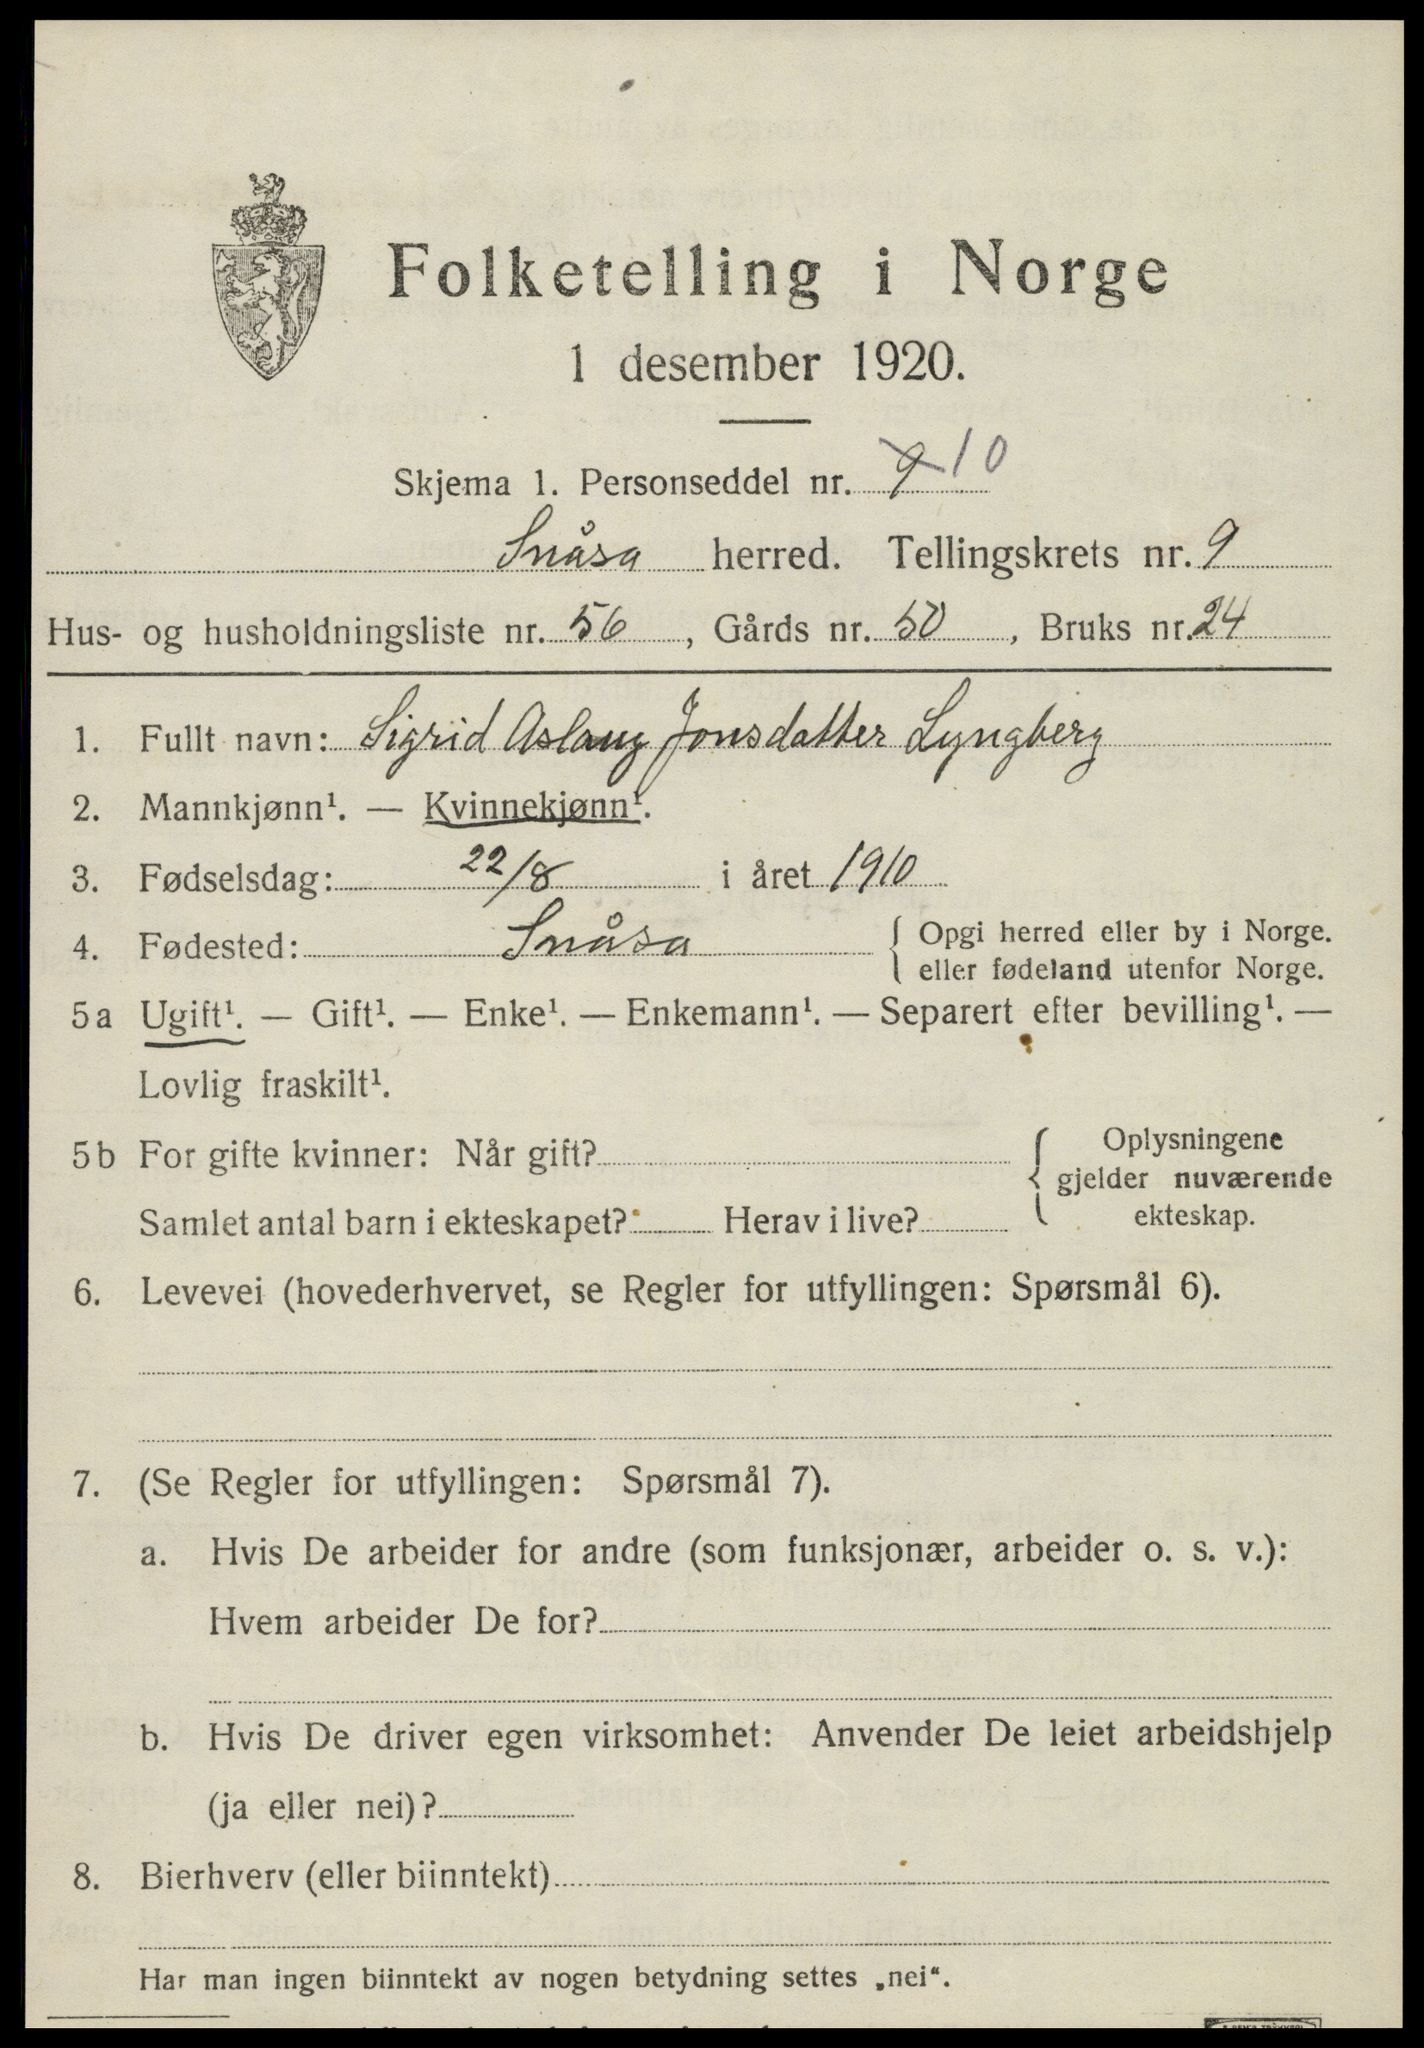 Folketelling i Norge
1 desember 1920.
Skjema 1. Personseddel nr. 9 10
Snåsa herred. Tellingskrets nr. 9
Hus- og husholdningsliste nr. 56, Gårds nr. 50, Bruks nr. 24
1. Fullt navn: Sigrid Aslaug Jonsdatter Lyngberg
2. Mannkjønn¹. — Kvinnekjønn¹.
3. Fødselsdag: 22/8 i året 1910
4. Fødested: Snåsa { Opgi herred eller by i Norge.
eller fødeland utenfor Norge.
5a Ugift¹. — Gift¹. — Enke¹. — Enkemann¹. — Separert efter bevilling¹. —
Lovlig fraskilt¹.
5b For gifte kvinner: Når gift? { Oplysningene
gjelder nuværende
Samlet antal barn i ekteskapet? Herav i live? ekteskap.
6. Levevei (hovederhvervet, se Regler for utfyllingen: Spørsmål 6).
7. (Se Regler for utfyllingen: Spørsmål 7).
a. Hvis De arbeider for andre (som funksjonær, arbeider o. s. v.):
Hvem arbeider De for?
b. Hvis De driver egen virksomhet: Anvender De leiet arbeidshjelp
(ja eller nei)?
8. Bierhverv (eller biinntekt)
Har man ingen biinntekt av nogen betydning settes „nei“.